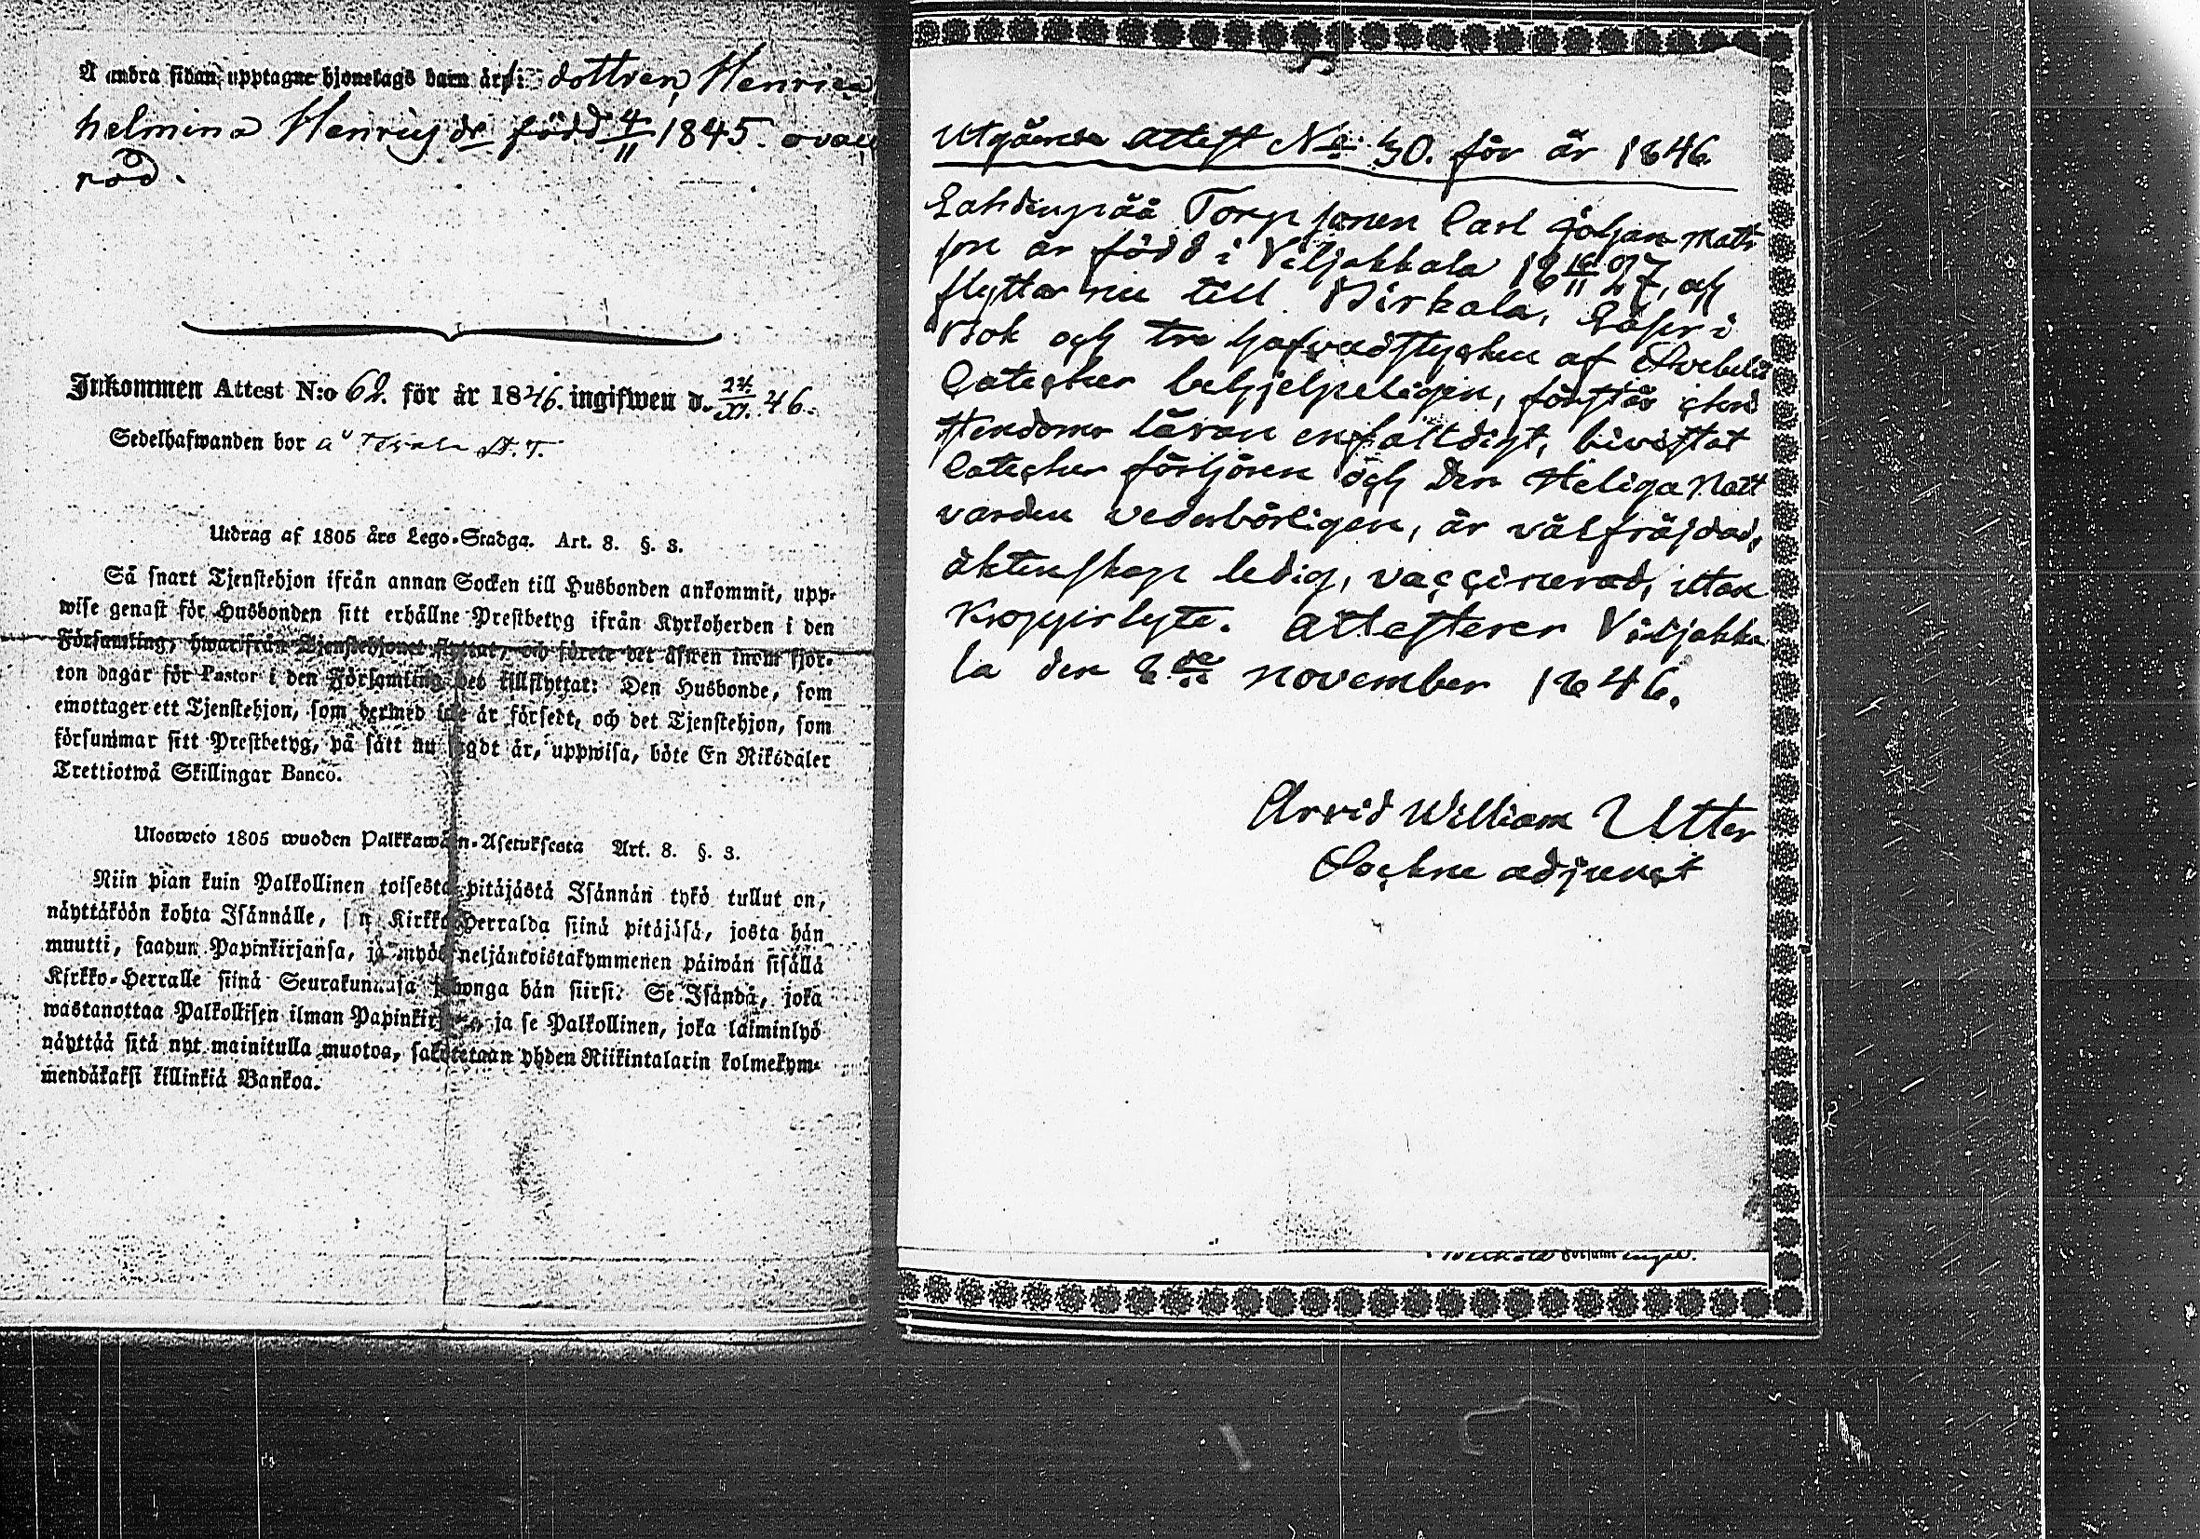 Å andra sidan upptagne hjonelags barn är: dottren, Henrica
helmina Henricsdr född 4/11 1845. ovac
nod.
Inkommen Attest N:o 62. för år 1846. ingifwen d. 24/XI. 46.
Sedelhafwanden bor å
Utdrag af 1805 års Lego-Stadga. Art. 8. §. 3.
Så snart Tjenstehjon ifrån annan Socken till Husbonden ankommit, upp-
wise genast för Husbonden sitt erhållne Prestbetyg ifrån Kyrkoherden i den
Församling, hwarifrån Tjenstehjonet flyttat, och förete det äfwen inom fjor-
ton dagar för Pastor i den Församling det tillflyttat: Den Husbonde, som
emottager ett Tjenstehjon, som dermed icke är försedt, och det Tjenstehjon, som
försummar sitt Prestbetyg, på sätt nu sagdt är, uppwisa, böte En Riksdaler
Trettiotwå Skillingar Banco.
Ulosweto 1805 wuoden Palkkawäen-Asetuksesta Art. 8. §. 3.
Niin pian kuin Palkollinen toisesta pitäjästä Isännän tykö tullut on,
näyttäköön kohta Isännälle, sen Kirkko-Herralda siinä pitäjäsä, josta hän
muutti, saadun Papinkirjansa, ja myös neljäntoistakymmenen päiwän sisällä
Kirkko-Herralle siinä Seurakunnasa jhonga hän siirsi: Se Isändä, joka
wastanottaa Palkollisen ilman Papinkirjata, ja se Palkollinen, joka laiminlyö
näyttää sitä nyt mainitulla muotoa, sakotetaan yhden Riikintalarin kolmekym-
mendäkaksi killinkiä Bankoa.
Utgående attest No 50. för år 1846.
Lahdenpää Torp sonen Carl Johan Mats
son är född i Viljakkala 18 16/11 27, och
flyttar nu till Birkala, Läser i
Bok och tre hufvudstycken af Svebelii
Cateches behjelpeligen, förstår christ
stendoms läran enfaldigt, bivistat
Cateches förhören och Den Heliga Natt
varden vederbörligen, är välfräjdad,
äktenskap ledig, vaccinerad, utan
kroppslyte. Attesterer Viljakka
la den 8de november 1846.
Arvid William Utter
Sockne adjunct